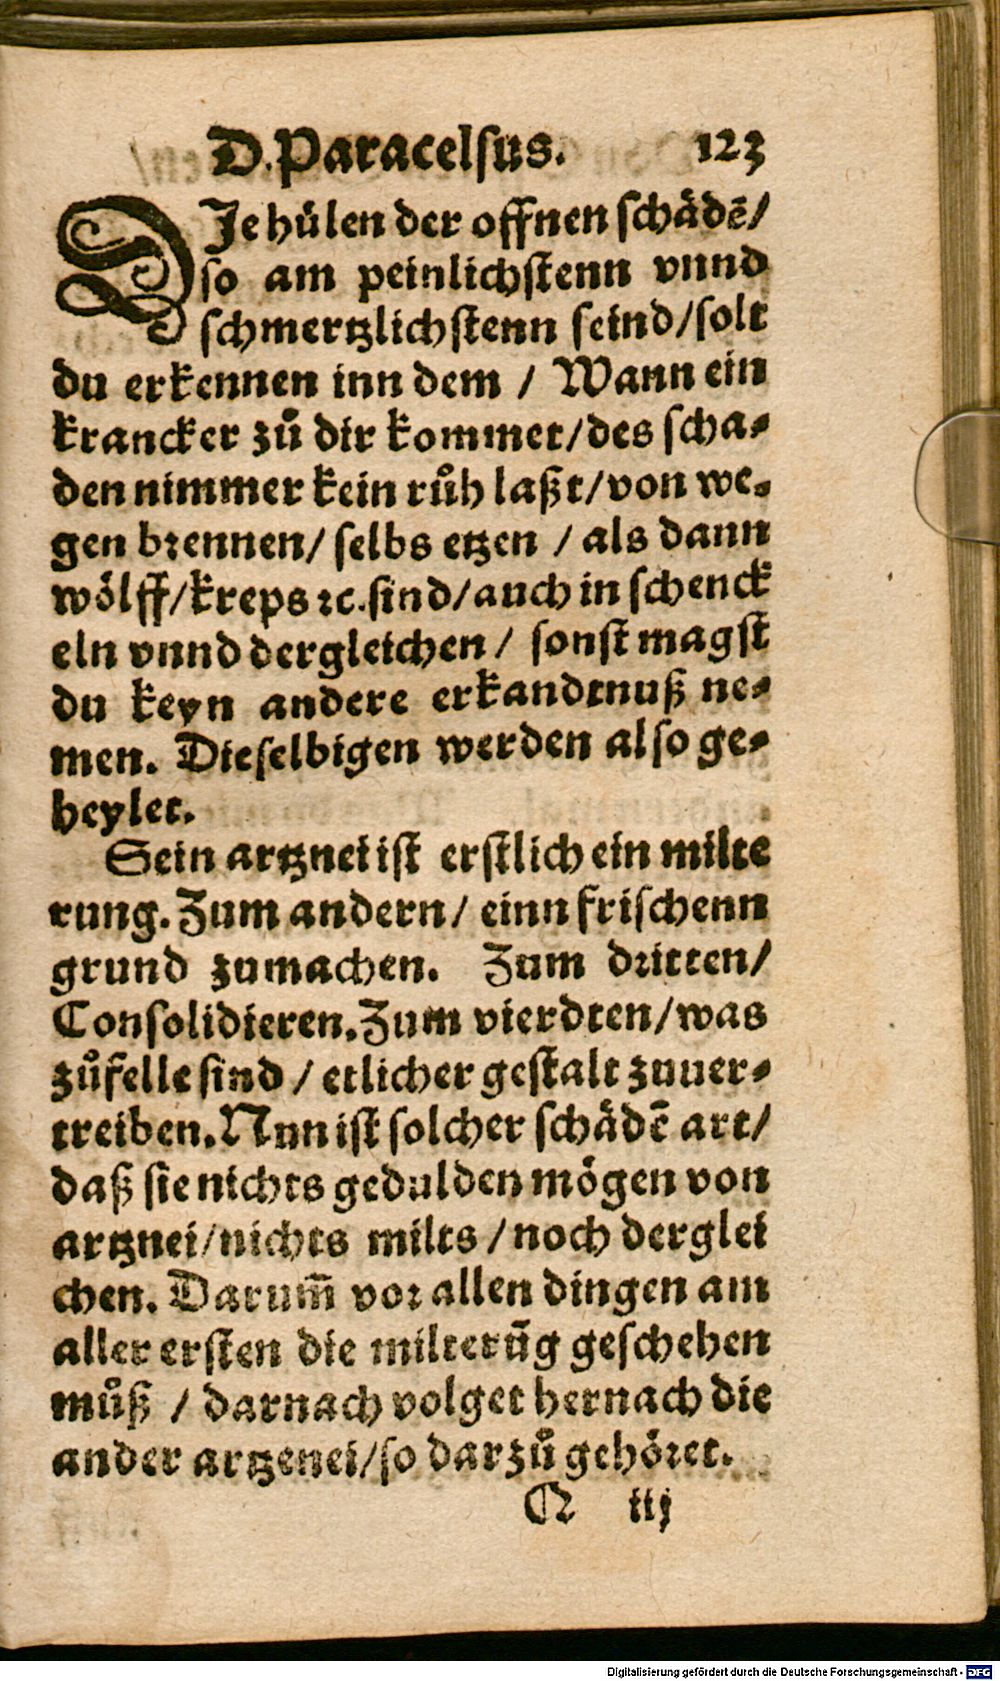 D. Paracelsus. 123
DJe hülen der offnen schädē/
so am peinlichstenn vnnd
schmertzlichstenn seind/solt
du erkennen inn dem / Wann ein
krancker zů dir kommet/des scha-
den nimmer kein růh laßt/von we-
gen brennen/ selbs etzen / als dann
wölff/kreps ꝛc.sind/auch in schenck
eln vnnd dergleichen / sonst magst
du keyn andere erkandtnuß ne-
men. Dieselbigen werden also ge-
heylet.
Sein artznei ist erstlich ein milte
rung. Zum andern/ einn frischenn
grund zumachen. Zum dritten/
Consolidieren. Zum vierdten/was
zůfelle sind / etlicher gestalt zuuer-
treiben. Nun ist solcher schädē art/
daß sie nichts gedulden mögen von
artznei/nichts milts / noch derglei
chen. Darum̄ vor allen dingen am
aller ersten die milterūg geschehen
můß / darnach volget hernach die
ander artzenei/so darzů gehöret.
Q iij
Digitalisierung gefördert durch die Deutsche Forschungsgemeinschaft - DFG